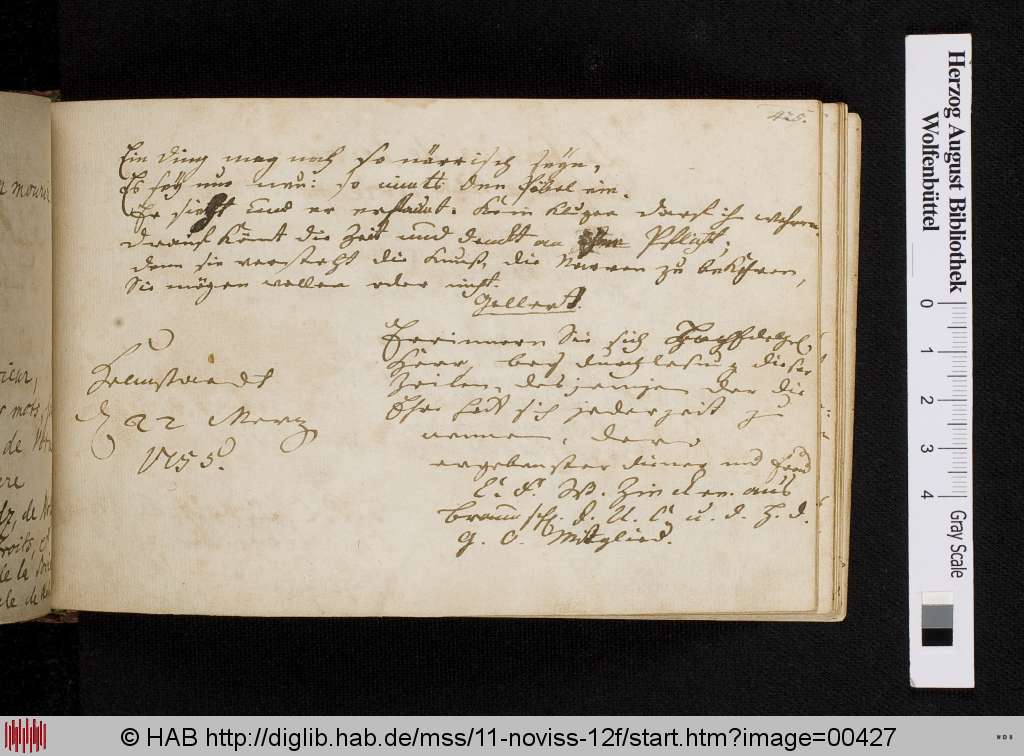 425.
Ein Ding mag noch so närrisch seyn,
Es sey nur neu: so nimts den Pöbel ein.
Er sieht und er erstaunt. Kein Kluger darf ihm wehren.
Drauf kömt die Zeit und denckt an ihre Pflicht;
denn sie versteht die Kunst, die Narren zu bekehren,
Sie mögen wollen oder nicht.
Gellert.
Erinnern Sie sich
Herr, bey durchlesung dieser
Zeilen, desjenigen der die
Ehre hat sich jederzeit zu
nennen, dero
ergebenster diener und
C. F. W. Zincken. aus
Braunschw. d. U. C. u. d. H. d.
G. O. Mitglied.
Helmstaedt
d 22 Merz
1755.
mourir
mots,
de
Droits,
de la
Herzog August Bibliothek
Wolfenbüttel
0 1 2 3 4
Gray Scale
© HAB http://diglib.hab.de/mss/11-noviss-12f/start.htm?image=00427